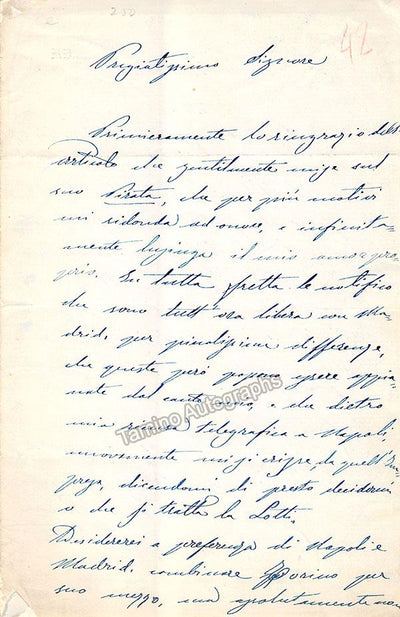 42
Pregiatissimo Signore
Primieramente lo ringrazio dell'
articolo che gentilmente mise sul
suo Pirata, che per più motivi
mi ridonda ad onore, e infinita-
mente lusinga il mio amor pro-
prio. In tutta fretta le notifico
che sono tutt'ora libera con Ma-
drid, per piccolissime differenze,
che queste però possono essere appia-
nate dal canto mio, e che dietro
mia telegrafica a Napoli,
nuovamente mi si scrisse da quell'Im-
presa, dicendomi di presto decidermi
o che si tratta la Lotti.
Desidererei a preferenza di Napoli e
Madrid, combinare Torino per
suo mezzo, ma assolutamente non
Tamino Autographs